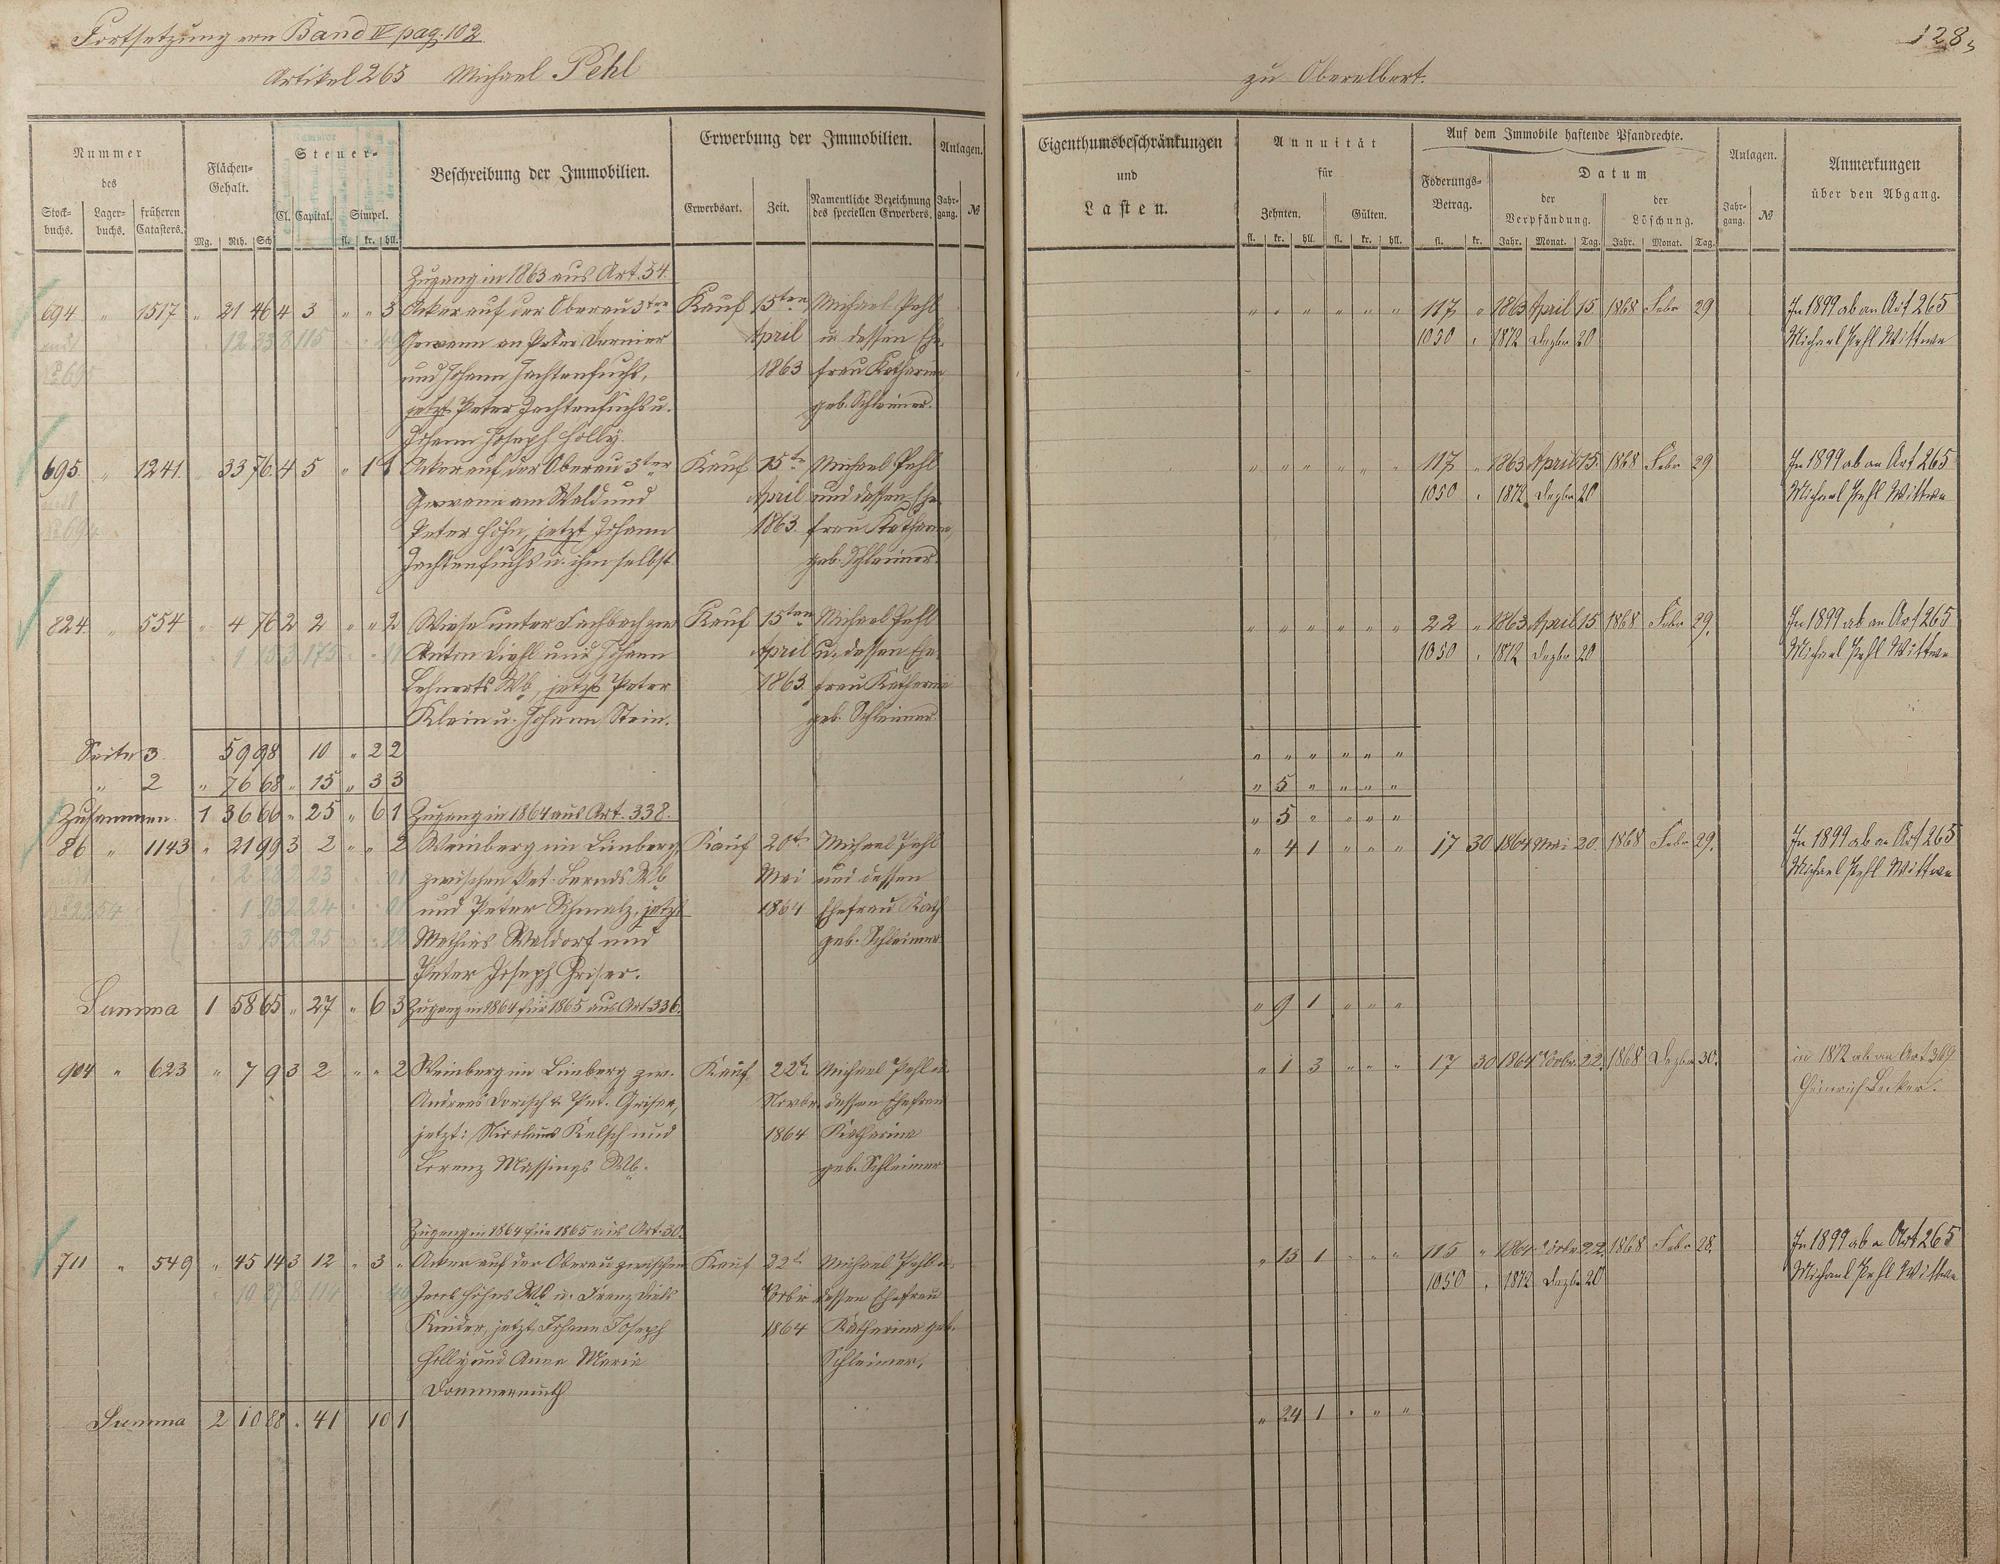 Fortsetzung von Band IV pag. 102
Artikel 265 Michael Pehl
zu Oberelbert.
128
Nummer
des
Stock-
buchs.
Lager-
buchs.
früheren
Catasters.
Flächen-
Gehalt.
Mg. Rth. Sch
Steuer-
Cl. Capital. Simpel.
fl. kr. hll.
Beschreibung der Immobilien.
Erwerbung der Immobilien.
Erwerbsart. Zeit. Namentliche Bezeichnung
des speciellen Erwerbers.
Anlagen.
Jahr-
gang. №
Eigenthumsbeschränkungen
und
Lasten.
Annuität
für
Zehnten. Gülten.
fl. kr. hll. fl. kr. hll.
Auf dem Immobile haftende Pfandrechte.
Föderungs-
Betrag.
fl. kr.
Datum
der
Verpfändung.
Jahr. Monat. Tag.
der
Löschung.
Jahr. Monat. Tag.
Anlagen.
Jahr-
gang. №
Anmerkungen
über den Abgang.
Zugang in 1863 aus Art. 54.
694 " 1517 " 21 46 4 3 " " 3 Acker auf der Oberau 3ter Kauf 15ten Michael Pehl " " " " " " 117 " 1863 April 15. 1868 Febr 29 In 1899 ab an Art 265
Gewann an Peter April u dessen Ehe- 1050 " 1872 Dezbr 20 Michael Pehl Wittwe
und Johann Jachtenfuchs, 1863 frau Katharina
jetzt Peter Jachtenfuchs u. geb. Schleimer.
Johann Joseph Holly.
695. " 1241. " 33 76. 4 5 " 1 1 Acker auf der Oberau 3ter Kauf 15te Michael Pehl " " " " " " 117 " 1863 April 15. 1868 Febr 29 In 1899 ab an Art 265
Gewann am Wald und April und dessen Ehe- 1050 " 1872 Dezbr 20 Michael Pehl Wittwe
Peter Höhn, jetzt Johann 1863. frau Katharina,
Jachtenfuchs u. ihm selbst. geb. Schleimer.
824. " 554 " 4 76 2 2 " " 2 Wiese unter Fachbach zw Kauf 15ten Michael Pehl " " " " " " 22 " 1863 April 15 1868 Febr 29. In 1899 ab an Art 265
Anton Diehl und Johann April u. dessen Ehe- 1050 " 1872 Dezbr 20 Michael Pehl Wittwe
Lehnerts Wb, jetzt Peter 1863. frau Katharina
Klein u. Johann Stein. geb. Schleimer.
Seite 3. 59 98 10 " 2 2 " " " " " "
" 2 " 76 68 " 15 " 3 3 " 5 " " " "
Zusammen. 1 36 66 " 25 " 6 1 Zugang in 1864 aus Art. 338. " 5 " " " "
86 " 1143 " 21 99 3 2 " " 2 Weinberg im Limberg, Kauf 20t Michael Pehl " 4 1 " " " 17 30 1864 Mai 20. 1868 Febr 29. In 1899 ab an Art 265
zwischen Pet. Bernds Wb Mai und dessen Michael Pehl Wittwe
und Peter Schmalz, jetzt 1864 Ehefrau Kath
Mathias Waldorf und geb. Schleimer
Peter Joseph Griser.
Summa 1 58 65 " 27 " 6 3 Zugang in 1864 für 1865 aus Art 336. " 9 1 " " "
904 " 623 " 7 9 3 2 " " 2 Weinberg im Limberg zw. Kauf 22t Michael Pehl u. " 1 3 " " " 17 30 1864 Novbr 22. 1868 Dezbr 30. in 1872 ab an Art 369
Andreas Dorisch & Pet. Griser, Novbr. dessen Ehefrau Heinrich Becker.
jetzt: Nicolaus Kelsch und 1864 Katharina
Lorenz Massings Wb. geb. Schleimer
Zugang in 1864 für 1865 aus Art. 30.
711 " 549 " 45 14 3 12 " 3 " Acker auf der Oberau zwischen Kauf 22t Michael Pehl u. " 13 1 " " " 115 " 1864 Novbr 22. 1868 Febr 28. In 1899 ab a Art 265
Jacob Höhns Wb u. Franz Diels Novbr dessen Ehefrau 1050 " 1872 Dezbr 20 Michael Pehl Wittwe
Kinder, jetzt Johann Joseph 1864 Katharina geb.
Holly und Anna Maria Schleimer,
Dommermuth
Summa 2 10 88 " 41 10 1 " 24 1 " " "